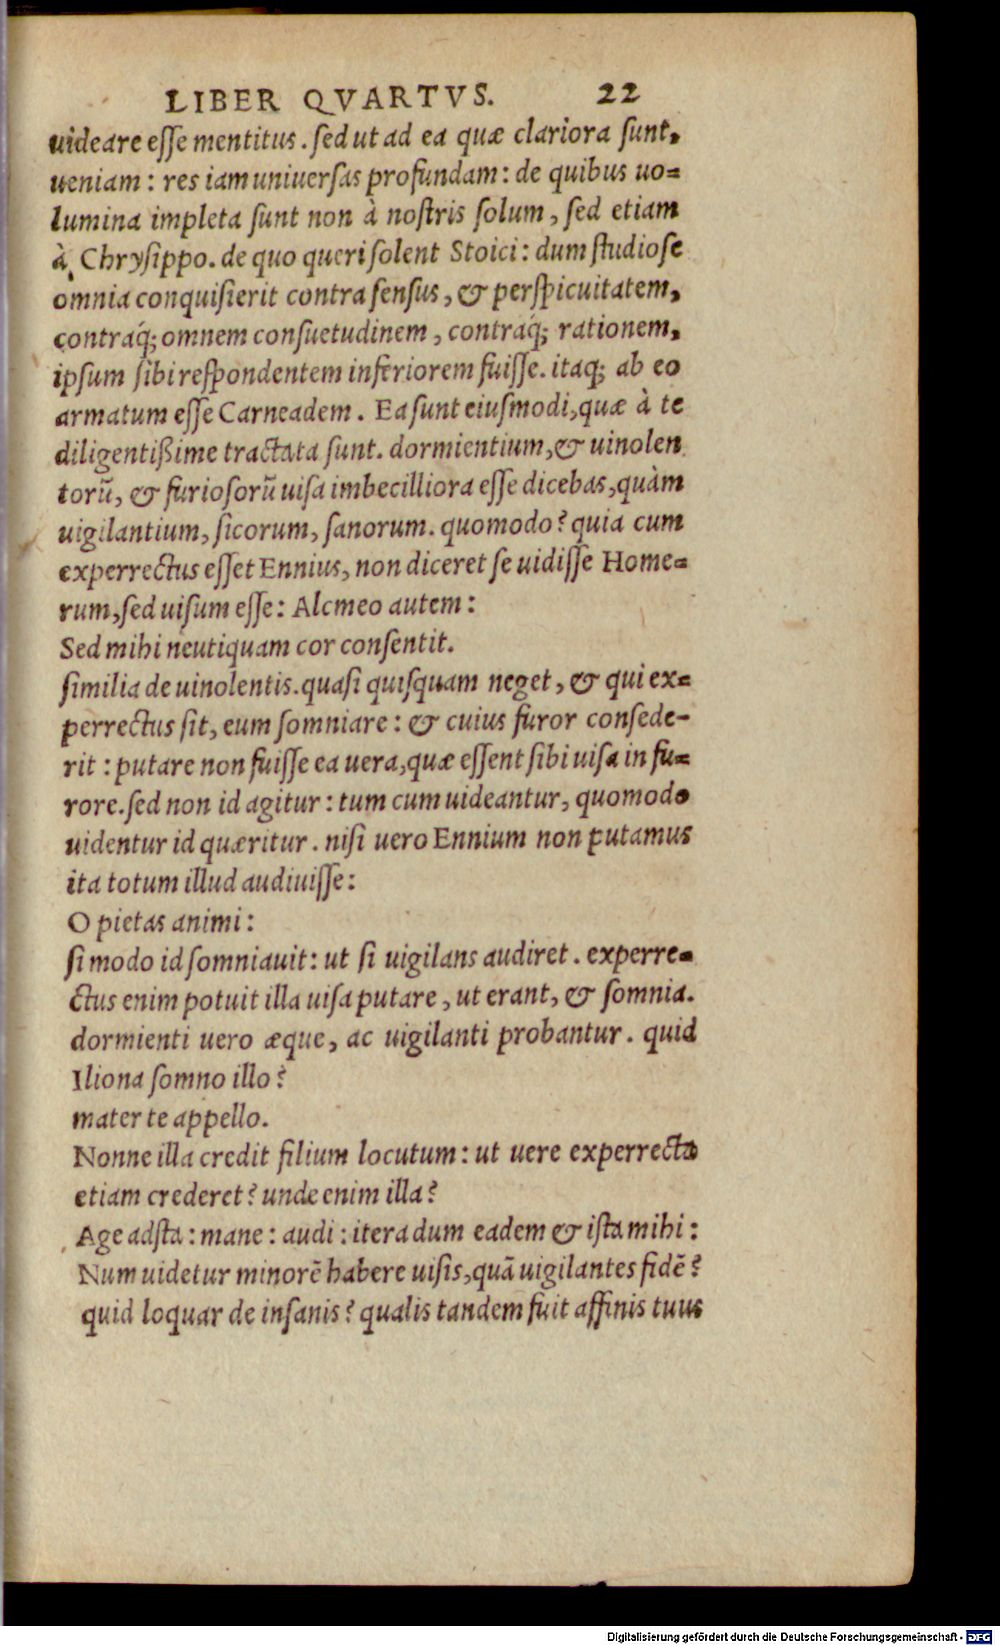 LIBER QVARTVS. 22
uideare eſſe mentitus. ſed ut ad ea quæ clariora ſunt,
ueniam: res iam uniuerſas profundam: de quibus uo=
lumina impleta ſunt non à noſtris ſolum, ſed etiam
à Chryſippo. de quo queri ſolent Stoici: dum ſtudioſe
omnia conquiſierit contra ſenſus, & perſpicuitatem,
contraq́; omnem conſuetudinem, contraq́; rationem,
ipſum ſibi reſpondentem inferiorem fuiſſe. itaq; ab eo
armatum eſſe Carneadem. Ea ſunt eiuſmodi, quæ à te
diligentißime tractata ſunt. dormientium, & uinolen
torũ, & furioſorũ uiſa imbecilliora eſſe dicebas, quàm
uigilantium, ſicorum, ſanorum. quomodo? quia cum
experrectus eſſet Ennius, non diceret ſe uidiſſe Home=
rum, ſed uiſum eſſe: Alcmeo autem:
Sed mihi neutiquam cor conſentit.
ſimilia de uinolentis. quaſi quiſquam neget, & qui ex=
perrectus ſit, eum ſomniare: & cuius furor conſede-
rit: putare non fuiſſe ea uera, quæ eſſent ſibi uiſa in fu=
rore. ſed non id agitur: tum cum uideantur, quomodo
uidentur id quæritur. niſi uero Ennium non putamus
ita totum illud audiuiſſe:
O pietas animi:
ſi modo id ſomniauit: ut ſi uigilans audiret. experre=
ctus enim potuit illa uiſa putare, ut erant, & ſomnia.
dormienti uero æque, ac uigilanti probantur. quid
Iliona ſomno illo?
mater te appello.
Nonne illa credit filium locutum: ut uere experrecta
etiam crederet? unde enim illa?
Age adſta: mane: audi: itera dum eadem & iſta mihi:
Num uidetur minorẽ habere uiſis, quã uigilantes fidẽ?
quid loquar de inſanis? qualis tandem fuit affinis tuus
Digitalisierung gefördert durch die Deutsche Forschungsgemeinschaft - DFG